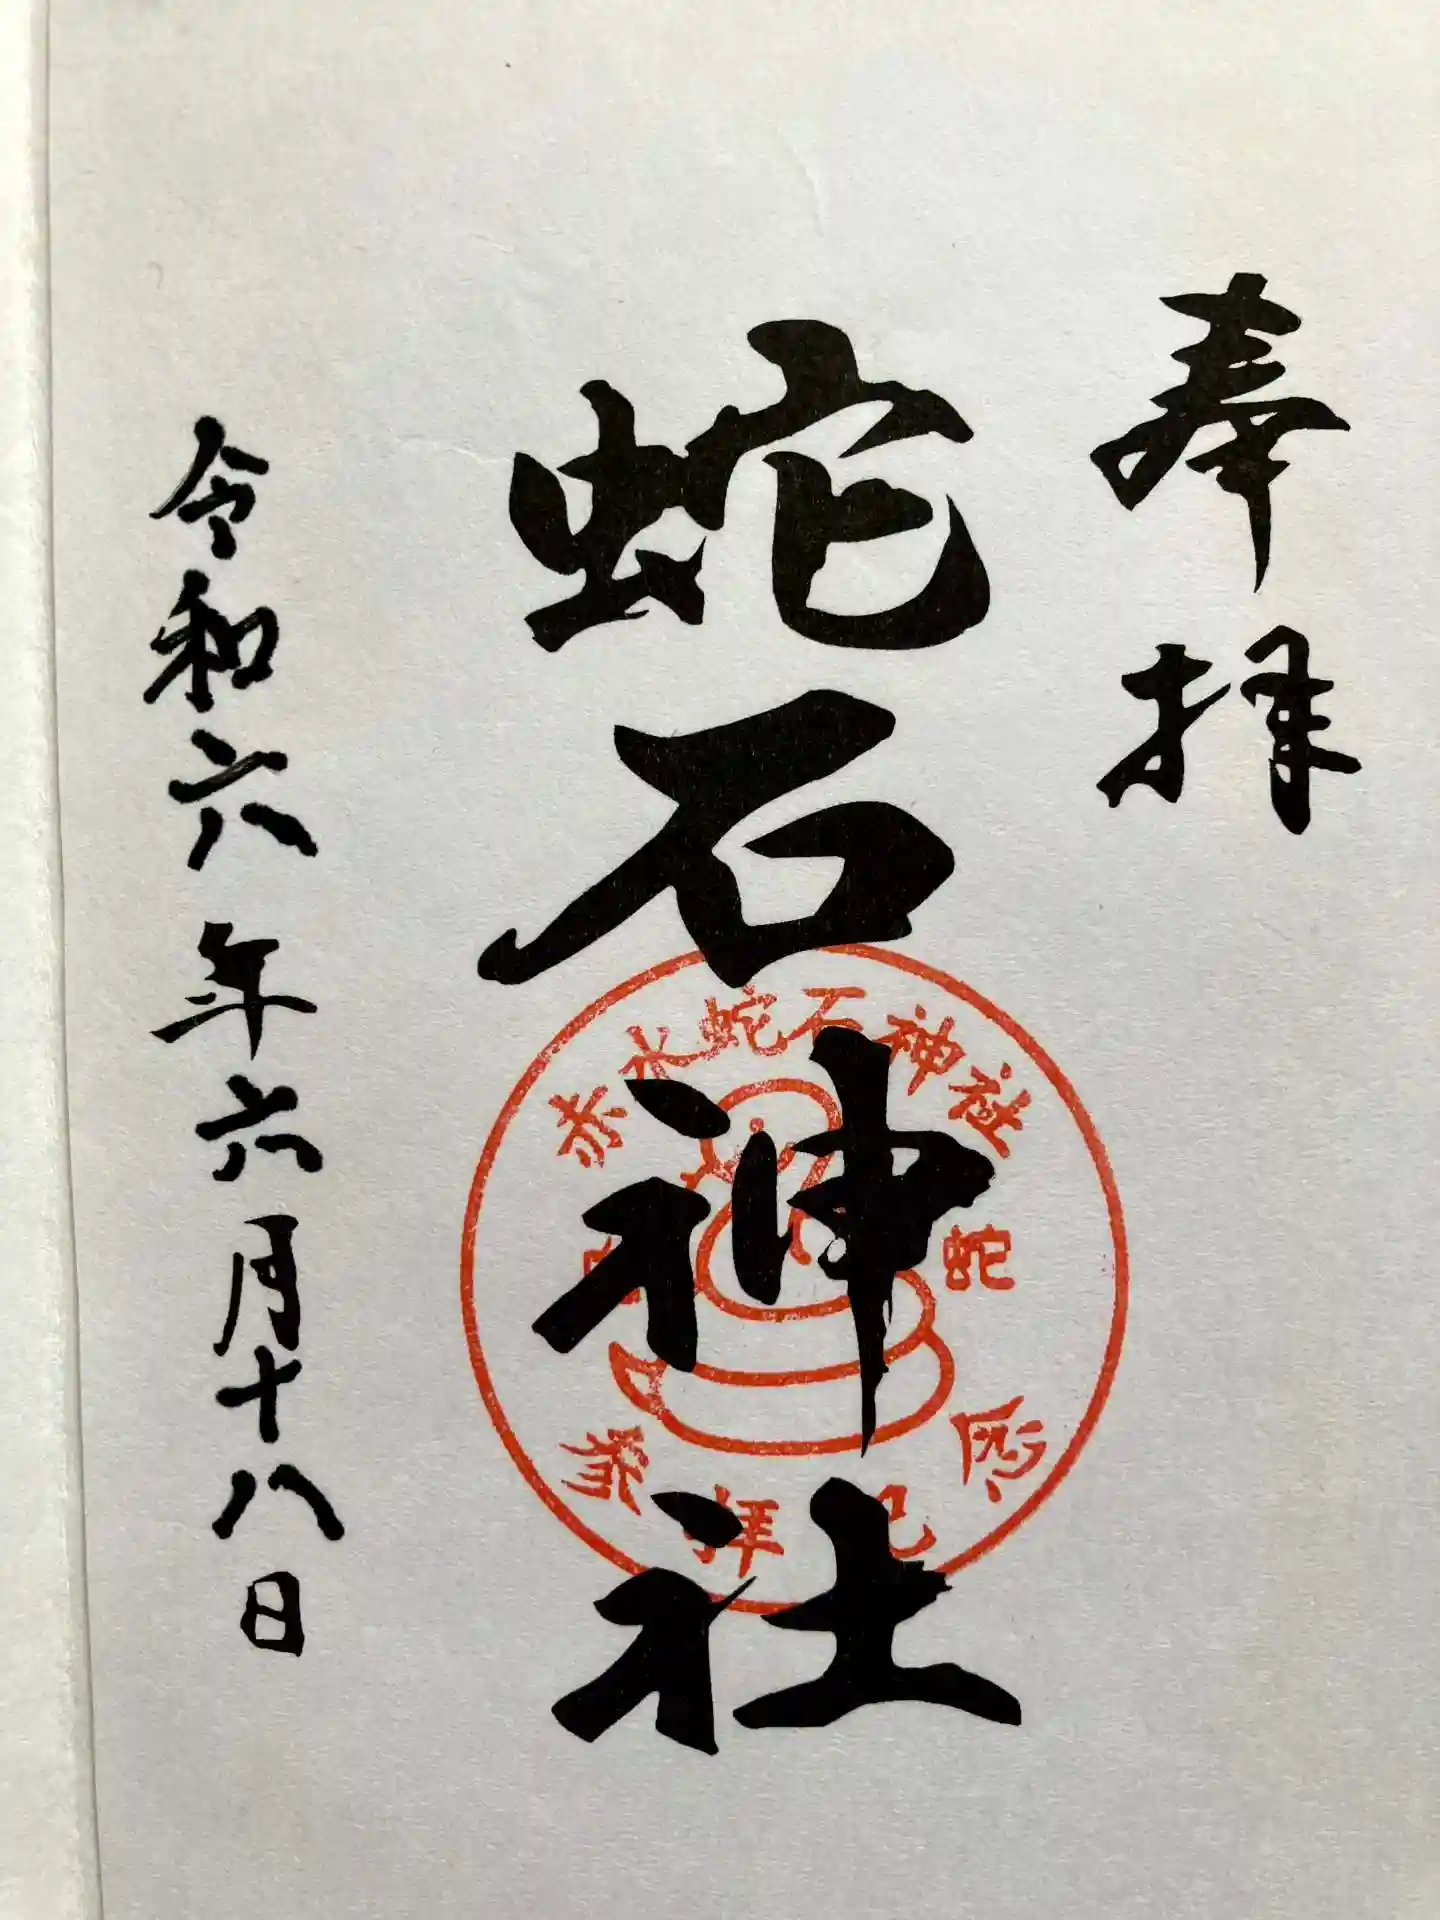 奉拝
蛇石神社
赤水蛇石神社
白蛇
参拝記念
令和六年六月十八日